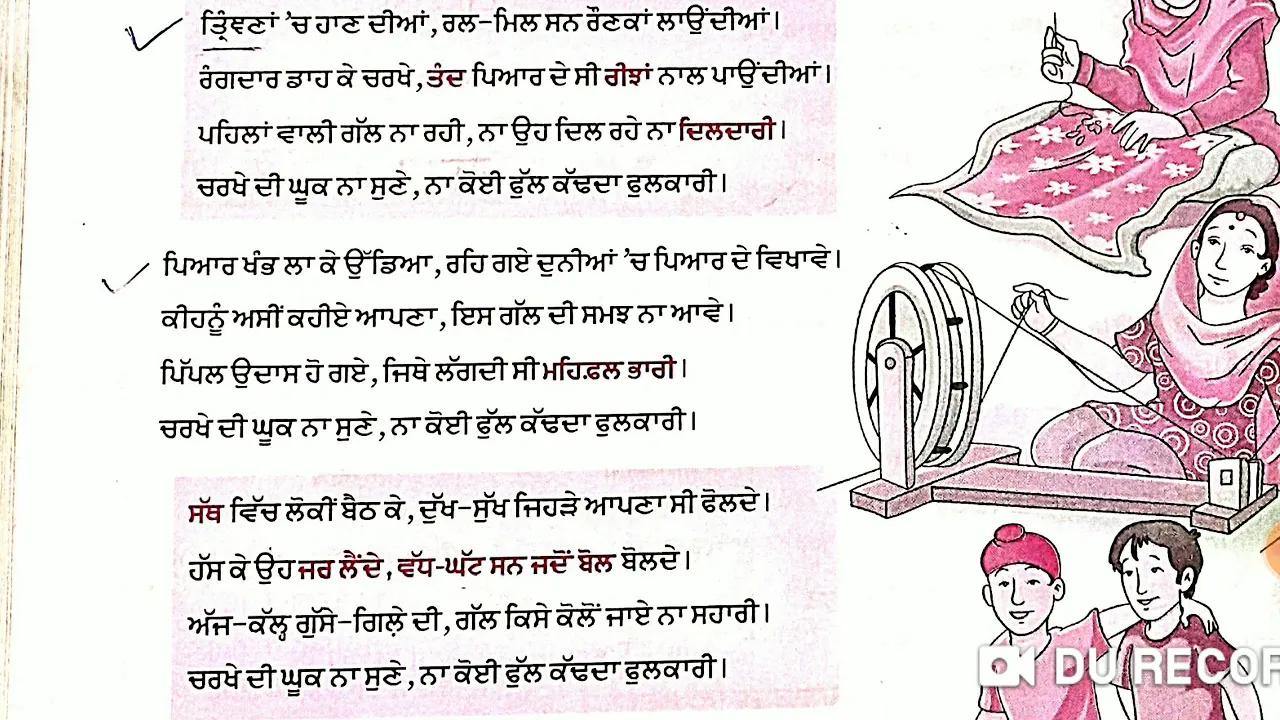 ਤ੍ਰਿੰਞਣਾਂ ’ਚ ਹਾਣ ਦੀਆਂ, ਰਲ-ਮਿਲ ਸਨ ਰੌਣਕਾਂ ਲਾਉਂਦੀਆਂ।
ਰੰਗਦਾਰ ਡਾਹ ਕੇ ਚਰਖੇ, ਤੰਦ ਪਿਆਰ ਦੇ ਸੀ ਰੀਝਾਂ ਨਾਲ ਪਾਉਂਦੀਆਂ।
ਪਹਿਲਾਂ ਵਾਲੀ ਗੱਲ ਨਾ ਰਹੀ, ਨਾ ਉਹ ਦਿਲ ਰਹੇ ਨਾ ਦਿਲਦਾਰੀ।
ਚਰਖੇ ਦੀ ਘੂਕ ਨਾ ਸੁਣੇ, ਨਾ ਕੋਈ ਫੁੱਲ ਕੱਢਦਾ ਫੁਲਕਾਰੀ।
ਪਿਆਰ ਖੰਭ ਲਾ ਕੇ ਉੱਡਿਆ, ਰਹਿ ਗਏ ਦੁਨੀਆਂ ’ਚ ਪਿਆਰ ਦੇ ਵਿਖਾਵੇ।
ਕੀਹਨੂੰ ਅਸੀਂ ਕਹੀਏ ਆਪਣਾ, ਇਸ ਗੱਲ ਦੀ ਸਮਝ ਨਾ ਆਵੇ।
ਪਿੱਪਲ ਉਦਾਸ ਹੋ ਗਏ, ਜਿਥੇ ਲੱਗਦੀ ਸੀ ਮਹਿਫ਼ਲ ਭਾਰੀ।
ਚਰਖੇ ਦੀ ਘੂਕ ਨਾ ਸੁਣੇ, ਨਾ ਕੋਈ ਫੁੱਲ ਕੱਢਦਾ ਫੁਲਕਾਰੀ।
ਸੱਥ ਵਿੱਚ ਲੋਕੀਂ ਬੈਠ ਕੇ, ਦੁੱਖ-ਸੁੱਖ ਜਿਹੜੇ ਆਪਣਾ ਸੀ ਫੋਲਦੇ।
ਹੱਸ ਕੇ ਉਹ ਜਰ ਲੈਂਦੇ, ਵੱਧ-ਘੱਟ ਸਨ ਜਦੋਂ ਬੋਲ ਬੋਲਦੇ।
ਅੱਜ-ਕੱਲ੍ਹ ਗੁੱਸੇ-ਗਿਲੇ ਦੀ, ਗੱਲ ਕਿਸੇ ਕੋਲੋਂ ਜਾਏ ਨਾ ਸਹਾਰੀ।
ਚਰਖੇ ਦੀ ਘੂਕ ਨਾ ਸੁਣੇ, ਨਾ ਕੋਈ ਫੁੱਲ ਕੱਢਦਾ ਫੁਲਕਾਰੀ।
DU RECOR